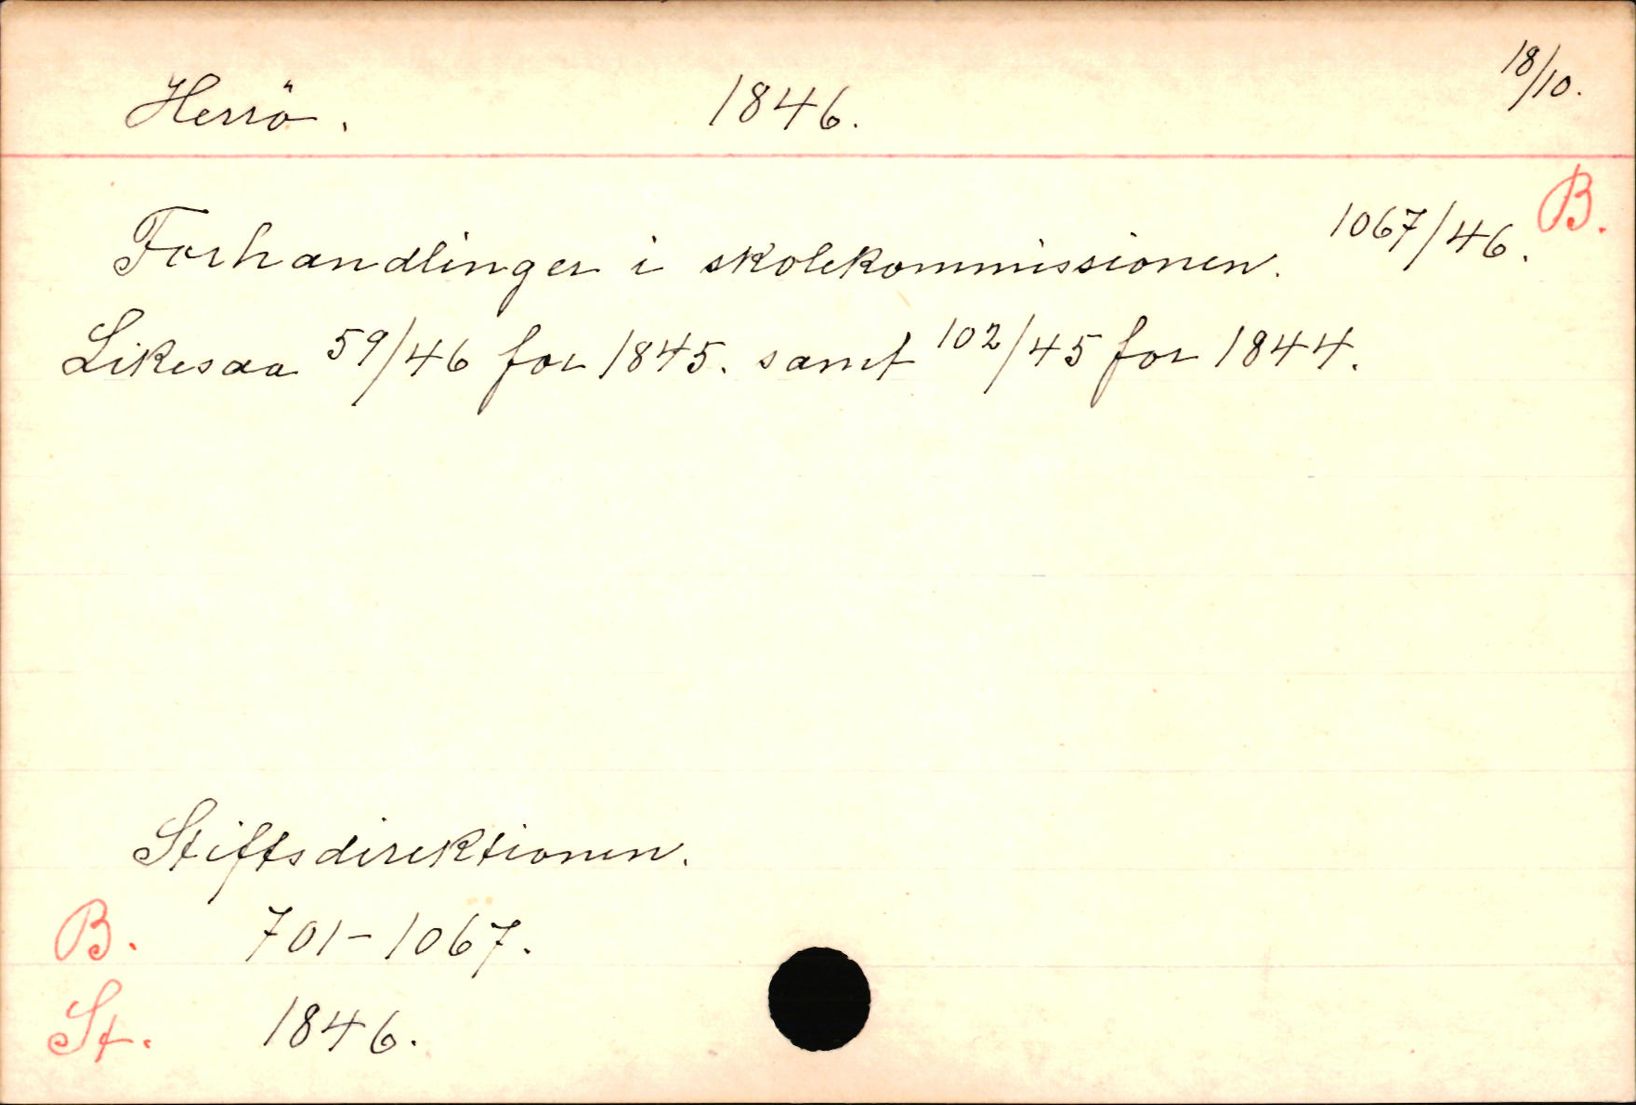 Herrö. 1846. 18/10.
B.
Forhandlinger i skolekommissionen. 1067/46.
Likesaa 59/46 for 1845. samt 102/45 for 1844.
Stiftsdirektionen.
B. 701-1067.
St. 1846.